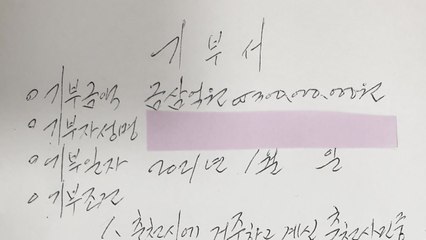 기부서
o 기부금액 금삼억원 ₩300,000,000원
o 기부자성명
o 기부일자 2021년 1월 일
o 기부조건
1. 춘천시에 거주하고 계신 춘천시민중